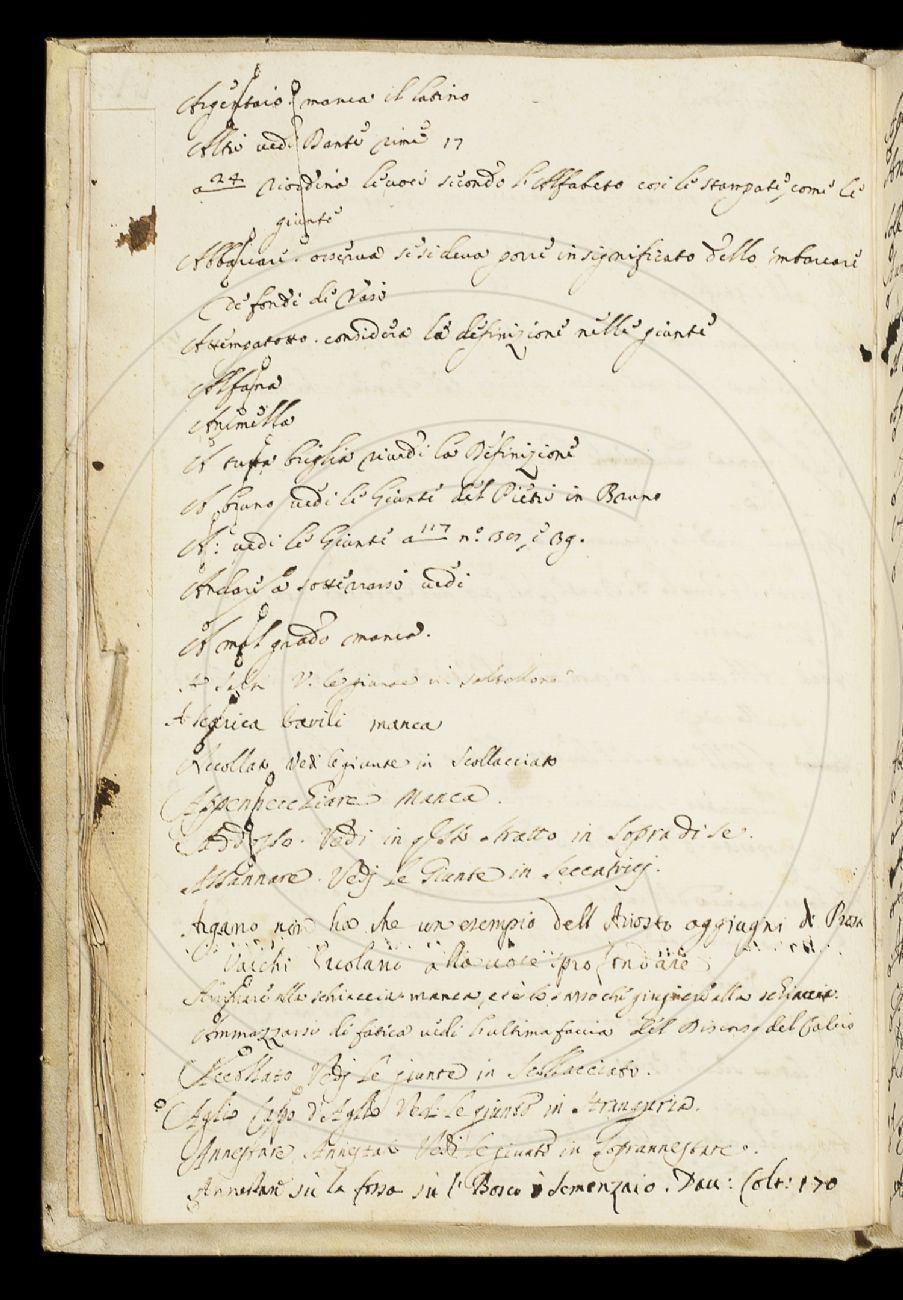 Argentaio. manca il latino
Altri vedi Dante rime 17
a 24 riordina le voci secondo l'Alfabeto così le stampate, come le
giunte
Abbarcare. osserva se si deva porre in significato dello imbarcare
de fondi de Vasi
Attempatotto. considera la definizione nelle giunte
Alfana
Animella
A tutta briglia rivedi la Definizione
A bruno vedi le Giunte del Pieri in Bruno
A: vedi le Giunte a 117 n.º e 39.
Andare a sotterrarsi vedi
A mal grado manca.
A V. le giunte in
manca
Accollato Vedi le giunte in Scollacciato
Appennecchiare Manca.
Addosso. Vedi in qsto stratto in Sopra di se.
Assannare. Vedj le Giunte in
Argano non ha che un esempio dell Ariosto aggiugni di
Varchi Ercolano alla voce profondare
alla schiaccia manca, e è lo stesso che giugnere alla schiaccia.
Ammazzarsi di fatica vedi l'ultima faccia del Discorso del Calcio
Accollato Vedj le giunte in Scollacciato.
Aglio Capo d'Aglio Vedi le giunte in Stranguria.
Annestare Annestat Vedi le giunte in Soprannestare.
Annestare sù la fossa sù l' Bosco ò Semenzaio. Dav: Colt: 170